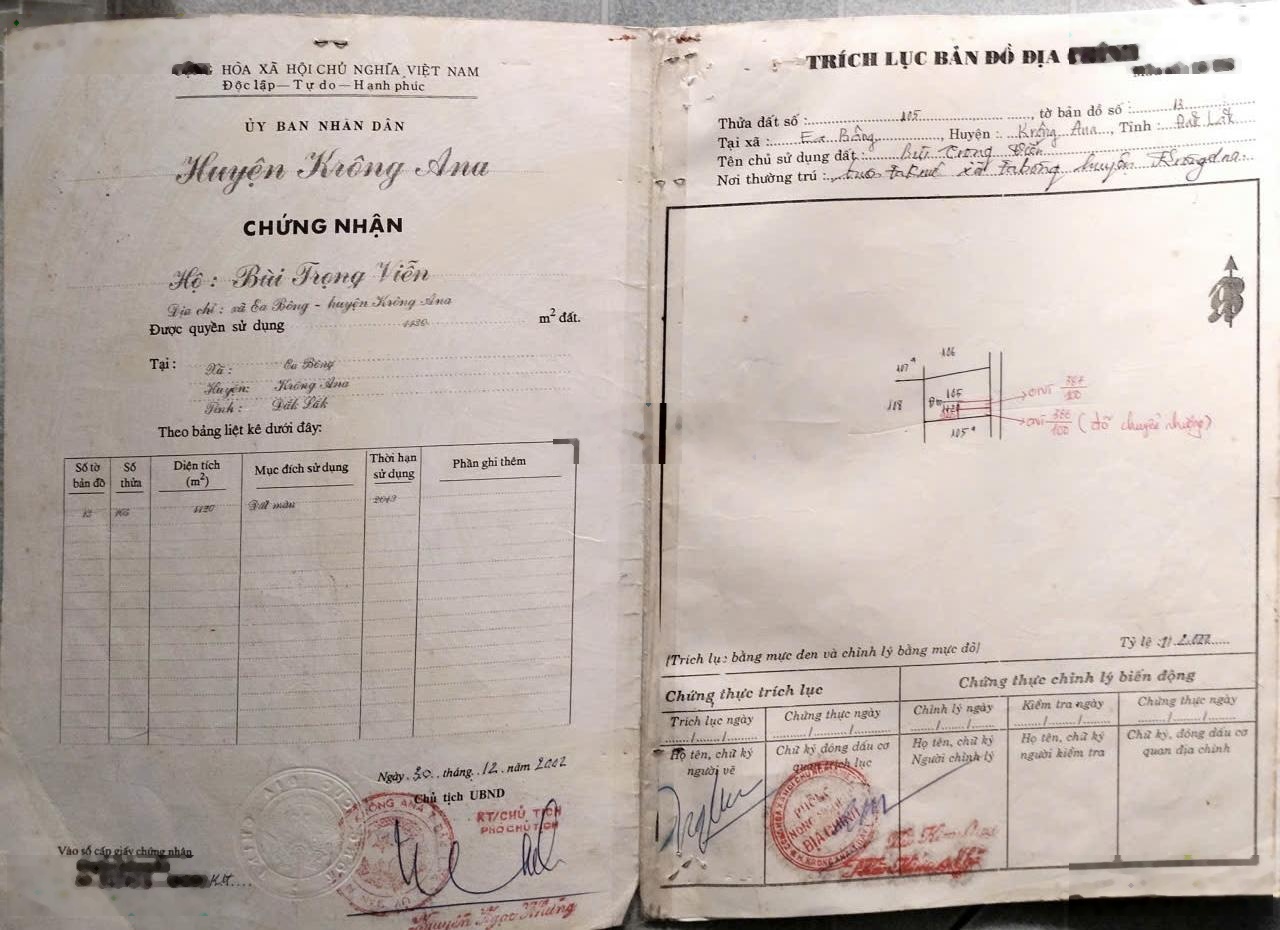 HÒA XÃ HỘI CHỦ NGHĨA VIỆT NAM
Độc lập — Tự do — Hạnh phúc
ỦY BAN NHÂN DÂN
Huyện Krông Ana
CHỨNG NHẬN
Hộ : Bùi Trọng Viễn
Địa chỉ : xã Ea Bông - huyện Krông Ana
Được quyền sử dụng 1120 m² đất.
Tại : Xã : Ea Bông
Huyện: Krông Ana
Tỉnh : Đăk Lăk
Theo bảng liệt kê dưới đây:
Số tờ bản đồ Số thửa Diện tích (m²) Mục đích sử dụng Thời hạn sử dụng Phần ghi thêm
13 105 1120 Đất màu 2013
Ngày 30 tháng 12 năm 2002
Chủ tịch UBND
KT/CHỦ TỊCH
PHÓ CHỦ TỊCH
Nguyễn Ngọc
Vào sổ cấp giấy chứng nhận
TRÍCH LỤC BẢN ĐỒ ĐỊA
Thửa đất số : 105, tờ bản đồ số : 13
Tại xã : Ea Bông, Huyện : Krông Ana, Tỉnh : Đăk Lăk
Tên chủ sử dụng đất : Bùi Trọng Viễn
Nơi thường trú : xã Eabông huyện KrôngAna
106
107
108
105
1120
105ᵃ
387/100
(đã chuyển nhượng)
(Trích lụ: bằng mực đen và chỉnh lý bằng mực đỏ)
Tỷ lệ :1/2.000
Chứng thực trích lục
Chứng thực chỉnh lý biến động
Trích lục ngày Chứng thực ngày Chỉnh lý ngày Kiểm tra ngày Chứng thực ngày
Họ tên, chữ ký người vẽ
Chữ ký đóng dấu cơ quan trích lục
Họ tên, chữ ký Người chỉnh lý
Họ tên, chữ ký người kiểm tra
Chữ ký, đóng dấu cơ quan địa chính
PHÒNG
ĐỊA CHÍNH